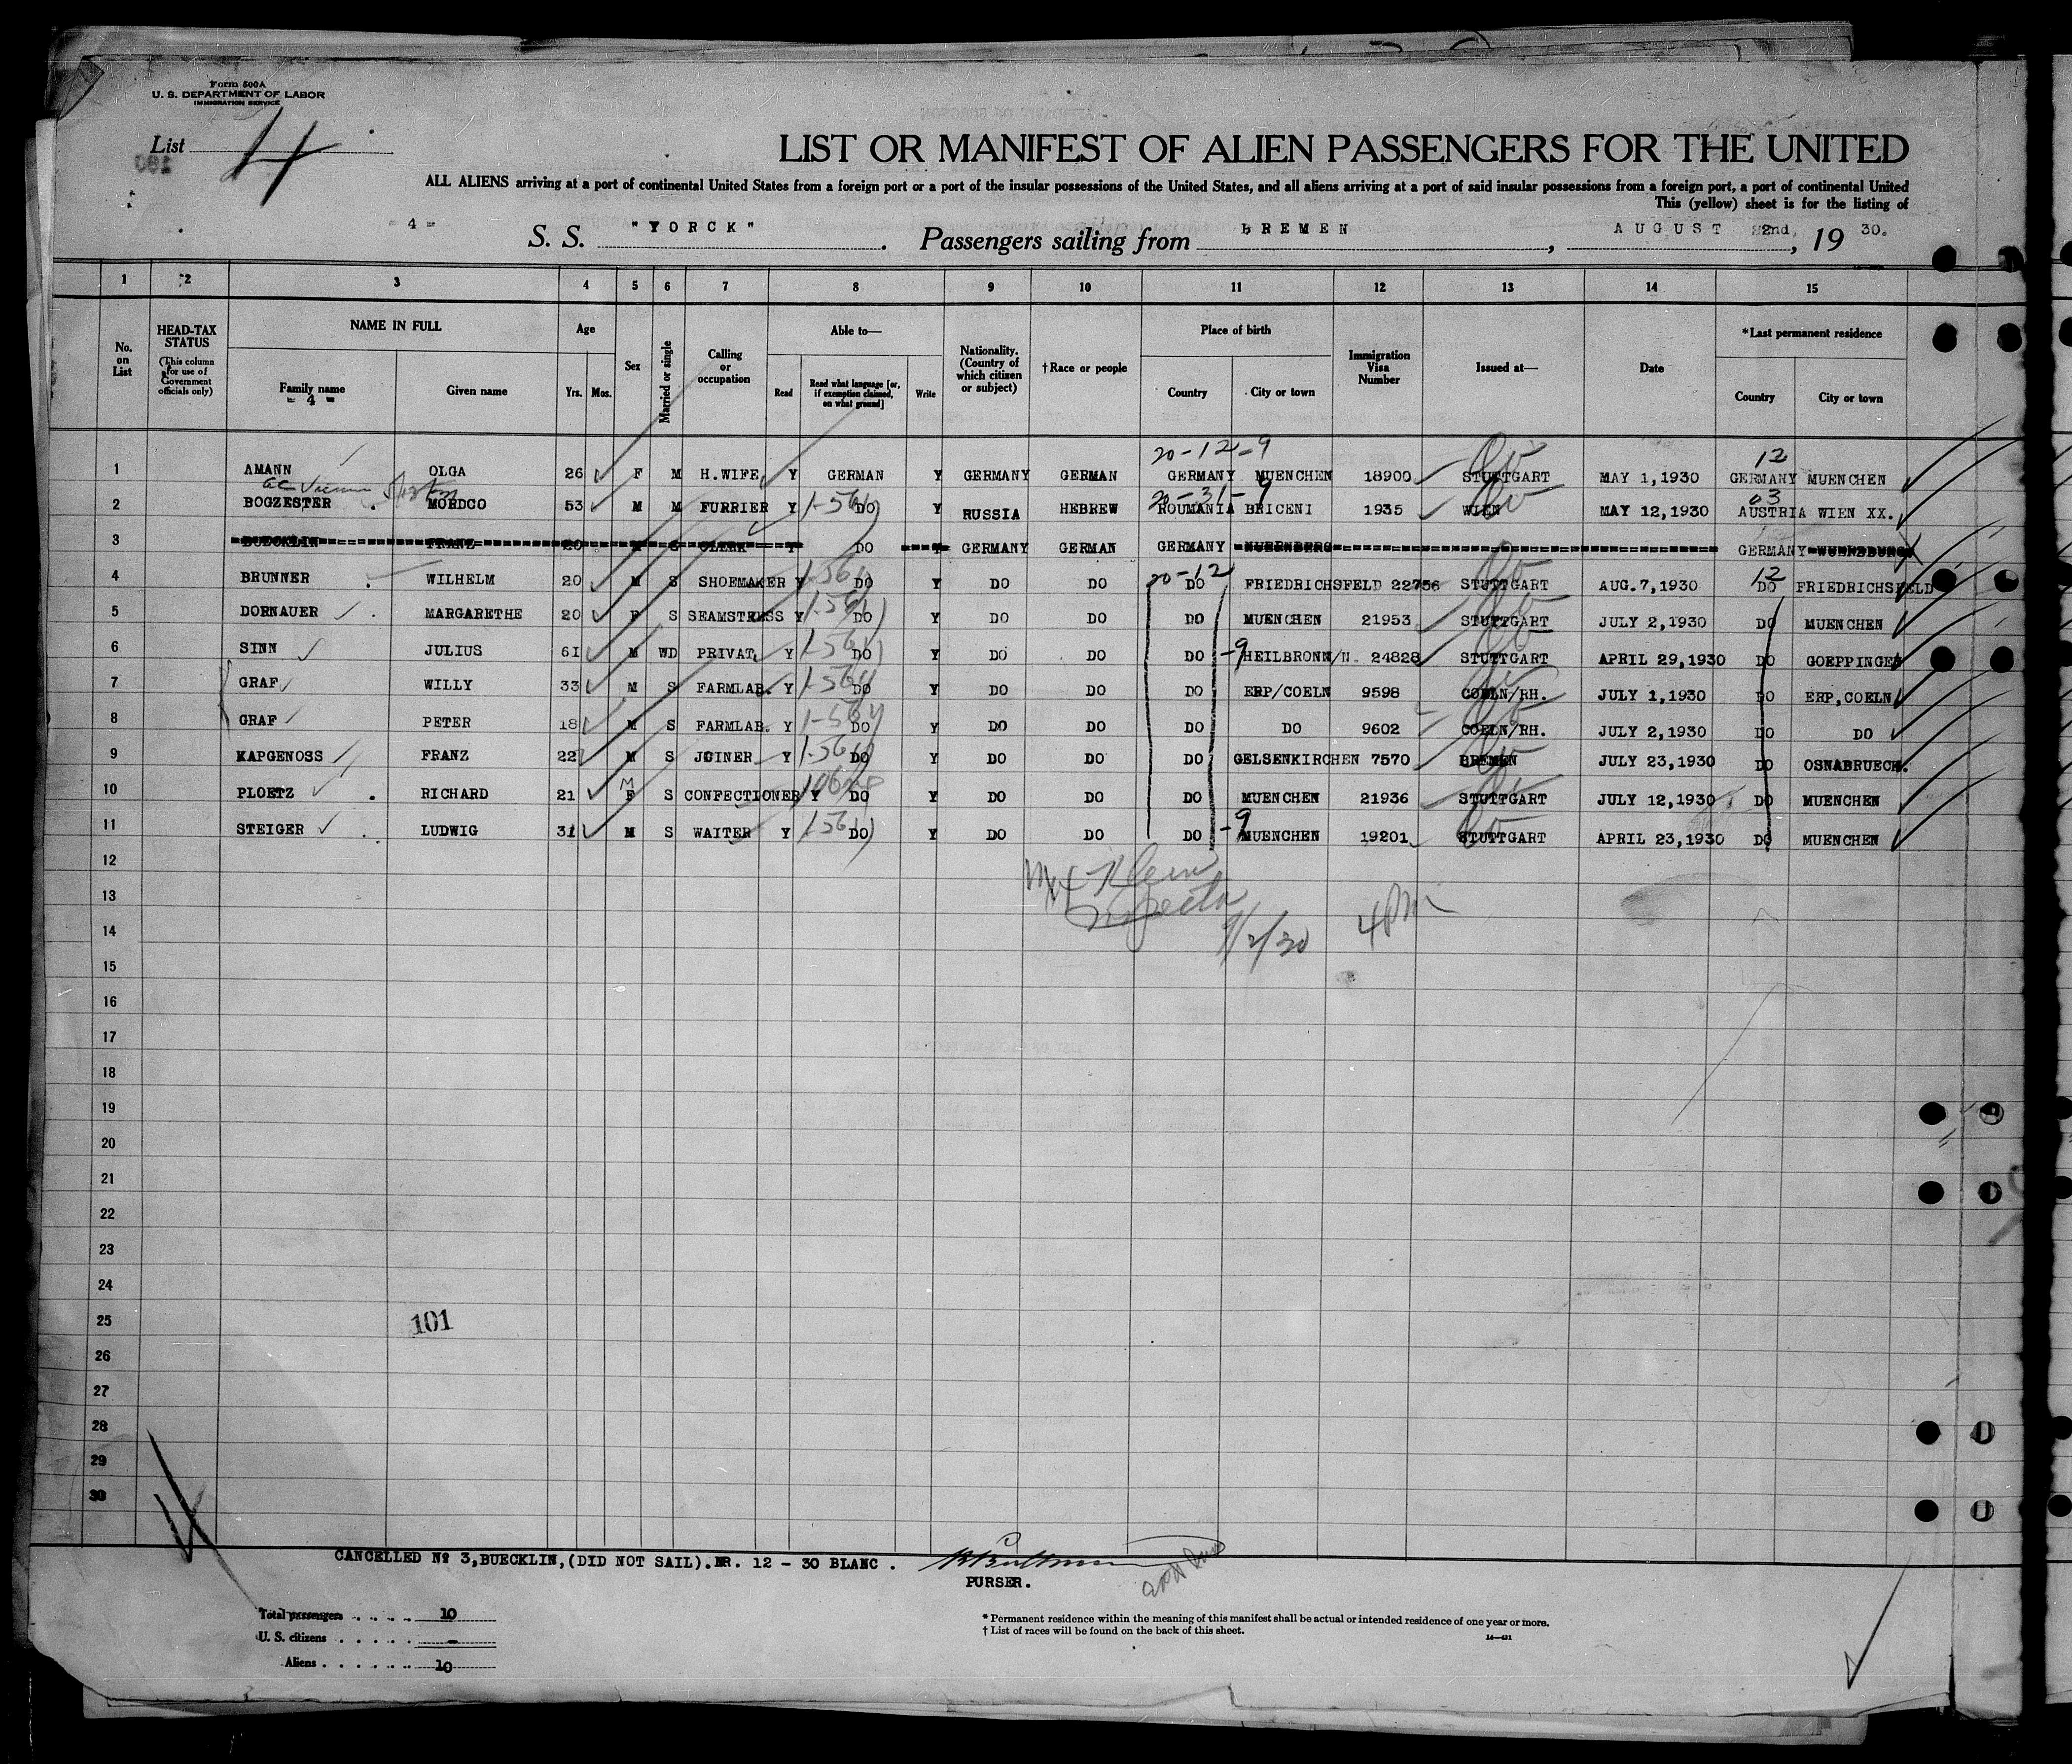 Form 500A
U. S. DEPARTMENT OF LABOR
IMMIGRATION SERVICE
List 4
LIST OR MANIFEST OF ALIEN PASSENGERS FOR THE UNITED
ALL ALIENS arriving at a port of continental United States from a foreign port or a port of the insular possessions of the United States, and all aliens arriving at a port of said insular possessions from a foreign port, a port of continental United
This (yellow) sheet is for the listing of
- 4 - S. S. "YORCK". Passengers sailing from BREMEN, AUGUST 22nd, 19 30.
1 2 3 4 5 6 7 8 9 10 11 12 13 14 15
No. on List HEAD-TAX STATUS (This column for use of Government officials only) NAME IN FULL Family name - 4 - Given name Age Yrs. Mos. Sex Married or single Calling or occupation Able to— Read Read what language [or, if exemption claimed, on what ground] Write Nationality. (Country of which citizen or subject) †Race or people Place of birth Country City or town Immigration Visa Number Issued at— Date *Last permanent residence Country City or town
20-12-9 12
1 AMANN OLGA 26 F M H.WIFE Y GERMAN Y GERMANY GERMAN GERMANY MUENCHEN 18900 STUTTGART MAY 1,1930 GERMANY MUENCHEN
20-31-9 03
2 BOGZESTER MORDCO 53 M M FURRIER Y DO Y RUSSIA HEBREW ROUMANIA BRICENI 1935 WIEN MAY 12,1930 AUSTRIA WIEN XX.
3 BUECKLIN FRANZ 20 M S CLERK Y DO Y GERMANY GERMAN GERMANY NUERNBERG GERMANY WUERZBURG
20-12 12
4 BRUNNER WILHELM 20 M S SHOEMAKER Y DO Y DO DO DO FRIEDRICHSFELD 22756 STUTTGART AUG.7,1930 DO FRIEDRICHSFELD
5 DORNAUER MARGARETHE 20 F S SEAMSTRESS Y DO Y DO DO DO MUENCHEN 21953 STUTTGART JULY 2,1930 DO MUENCHEN
6 SINN JULIUS 61 M WD PRIVAT. Y DO Y DO DO DO -9 HEILBRONN/N. 24828 STUTTGART APRIL 29,1930 DO GOEPPINGEN
7 GRAF WILLY 33 M S FARMLAB. Y DO Y DO DO DO ERP/COELN 9598 COELN/RH. JULY 1,1930 DO ERP,COELN
8 GRAF PETER 18 M S FARMLAB. Y DO Y DO DO DO DO 9602 COELN/RH. JULY 2,1930 DO DO
9 KAPGENOSS FRANZ 22 M S JOINER Y DO Y DO DO DO GELSENKIRCHEN 7570 BREMEN JULY 23,1930 DO OSNABRUECK.
M
10 PLOETZ RICHARD 21 F S CONFECTIONER Y DO Y DO DO DO MUENCHEN 21936 STUTTGART JULY 12,1930 DO MUENCHEN
11 STEIGER LUDWIG 31 M S WAITER Y DO Y DO DO DO -9 MUENCHEN 19201 STUTTGART APRIL 23,1930 DO MUENCHEN
12
Klein
13
Inspector
14 9/2/30 4 PM
15
16
17
18
19
20
21
22
23
24
25 101
26
27
28
29
30
CANCELLED Nº 3,BUECKLIN,(DID NOT SAIL).NR. 12 - 30 BLANC .
PURSER.
Total passengers . . . . 10
U. S. citizens . . . . . . -
Aliens . . . . . . . 10
* Permanent residence within the meaning of this manifest shall be actual or intended residence of one year or more.
† List of races will be found on the back of this sheet.
14—421